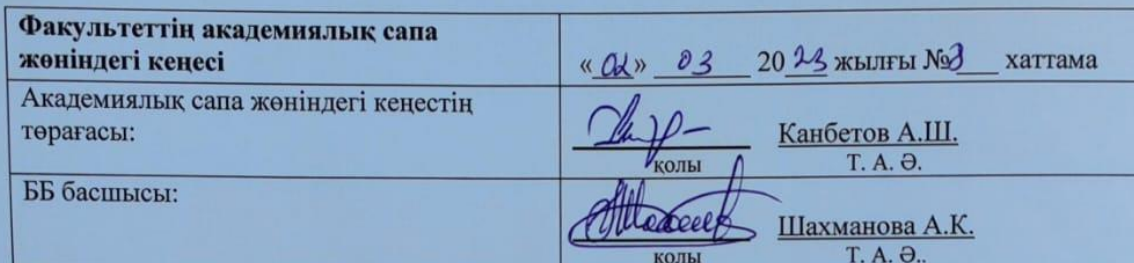 Факультеттің академиялық сапа
жөніндегі кеңесі
«02» 03 2023 жылғы №3 хаттама
Академиялық сапа жөніндегі кеңестің
төрағасы:
Канбетов А.Ш.
қолы Т. А. Ә.
ББ басшысы:
Шахманова А.К.
қолы Т. А. Ә..